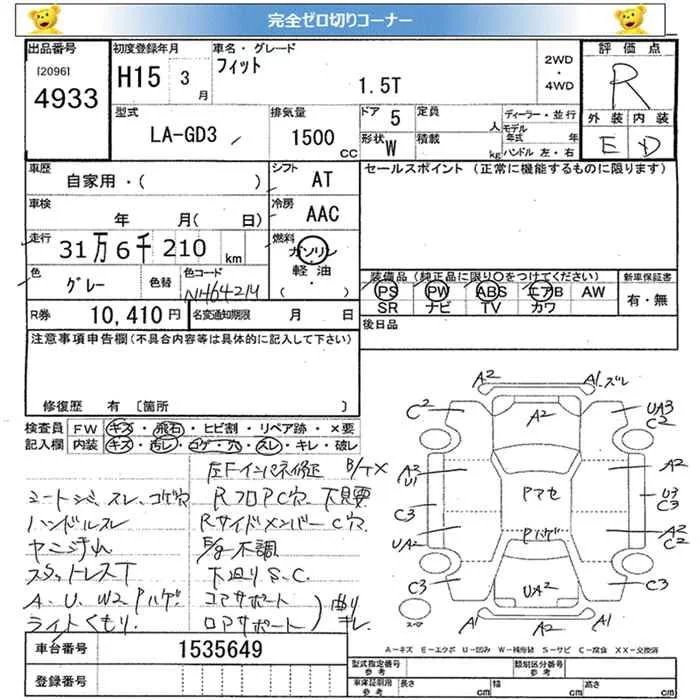 完全ゼロ切りコーナー
出品番号 初度登録年月 車名・グレード 評価点
[2096] フィット 2WD
4933 H15 3月 1.5T ・ 4WD R
型式 排気量 ドア 5 定員 人 ディーラー・並行 外装 内装
LA-GD3 1500 CC 形状 W 積載 kg モデル年式 年 ハンドル 左・右 E D
車歴 自家用・( ) シフト AT セールスポイント (正常に機能するものに限ります)
車検 年 月( 日) 冷房 AAC
走行 31万6千210 km 燃料 ガソリン
軽・油
・( )
色 グレー 色替 色コード 装備品(純正品に限り○をつけてください) 新車保証書
PS PW ABS エアB AW 有・無
SR ナビ TV カワ
R券 10,410円 名変通知期限 月 日 後日品
注意事項申告欄(不具合内容等は具体的に記入して下さい)
修復歴 有 〔箇所 〕
検査員 FW キズ・飛石・ヒビ割・リペア跡・×要
記入欄 内装 キズ・汚レ・コゲ・穴・スレ・キレ・破レ
左Fインパネ修正 B/TX
シートシミ、スレ、コゲ穴 RフロアC穴 下見要
ハンドルスレ RサイドメンバーC穴
ヤニ汚れ E/g不調
スタットレスT 下廻りS.C.
A、U、W2 Pハゲ コアサポート
ライトくもり ロアサポート 曲り キレ
A2 A1-ズレ
C2 A2 UA3 C2
A2 U1 A2
C3 Pマセ U3 C3
UA2 Pハゲ A2 C2
C3 UA2 C3
スペア A1 A2 A1
A－キズ E－エクボ U－凹み W－補修跡 S－サビ C－腐食 XX－交換済
車台番号 1535649
登録番号
型式指定番号 参考 類別区分番号 参考
車庫証明用 参考 長さ cm 幅 cm 高さ cm